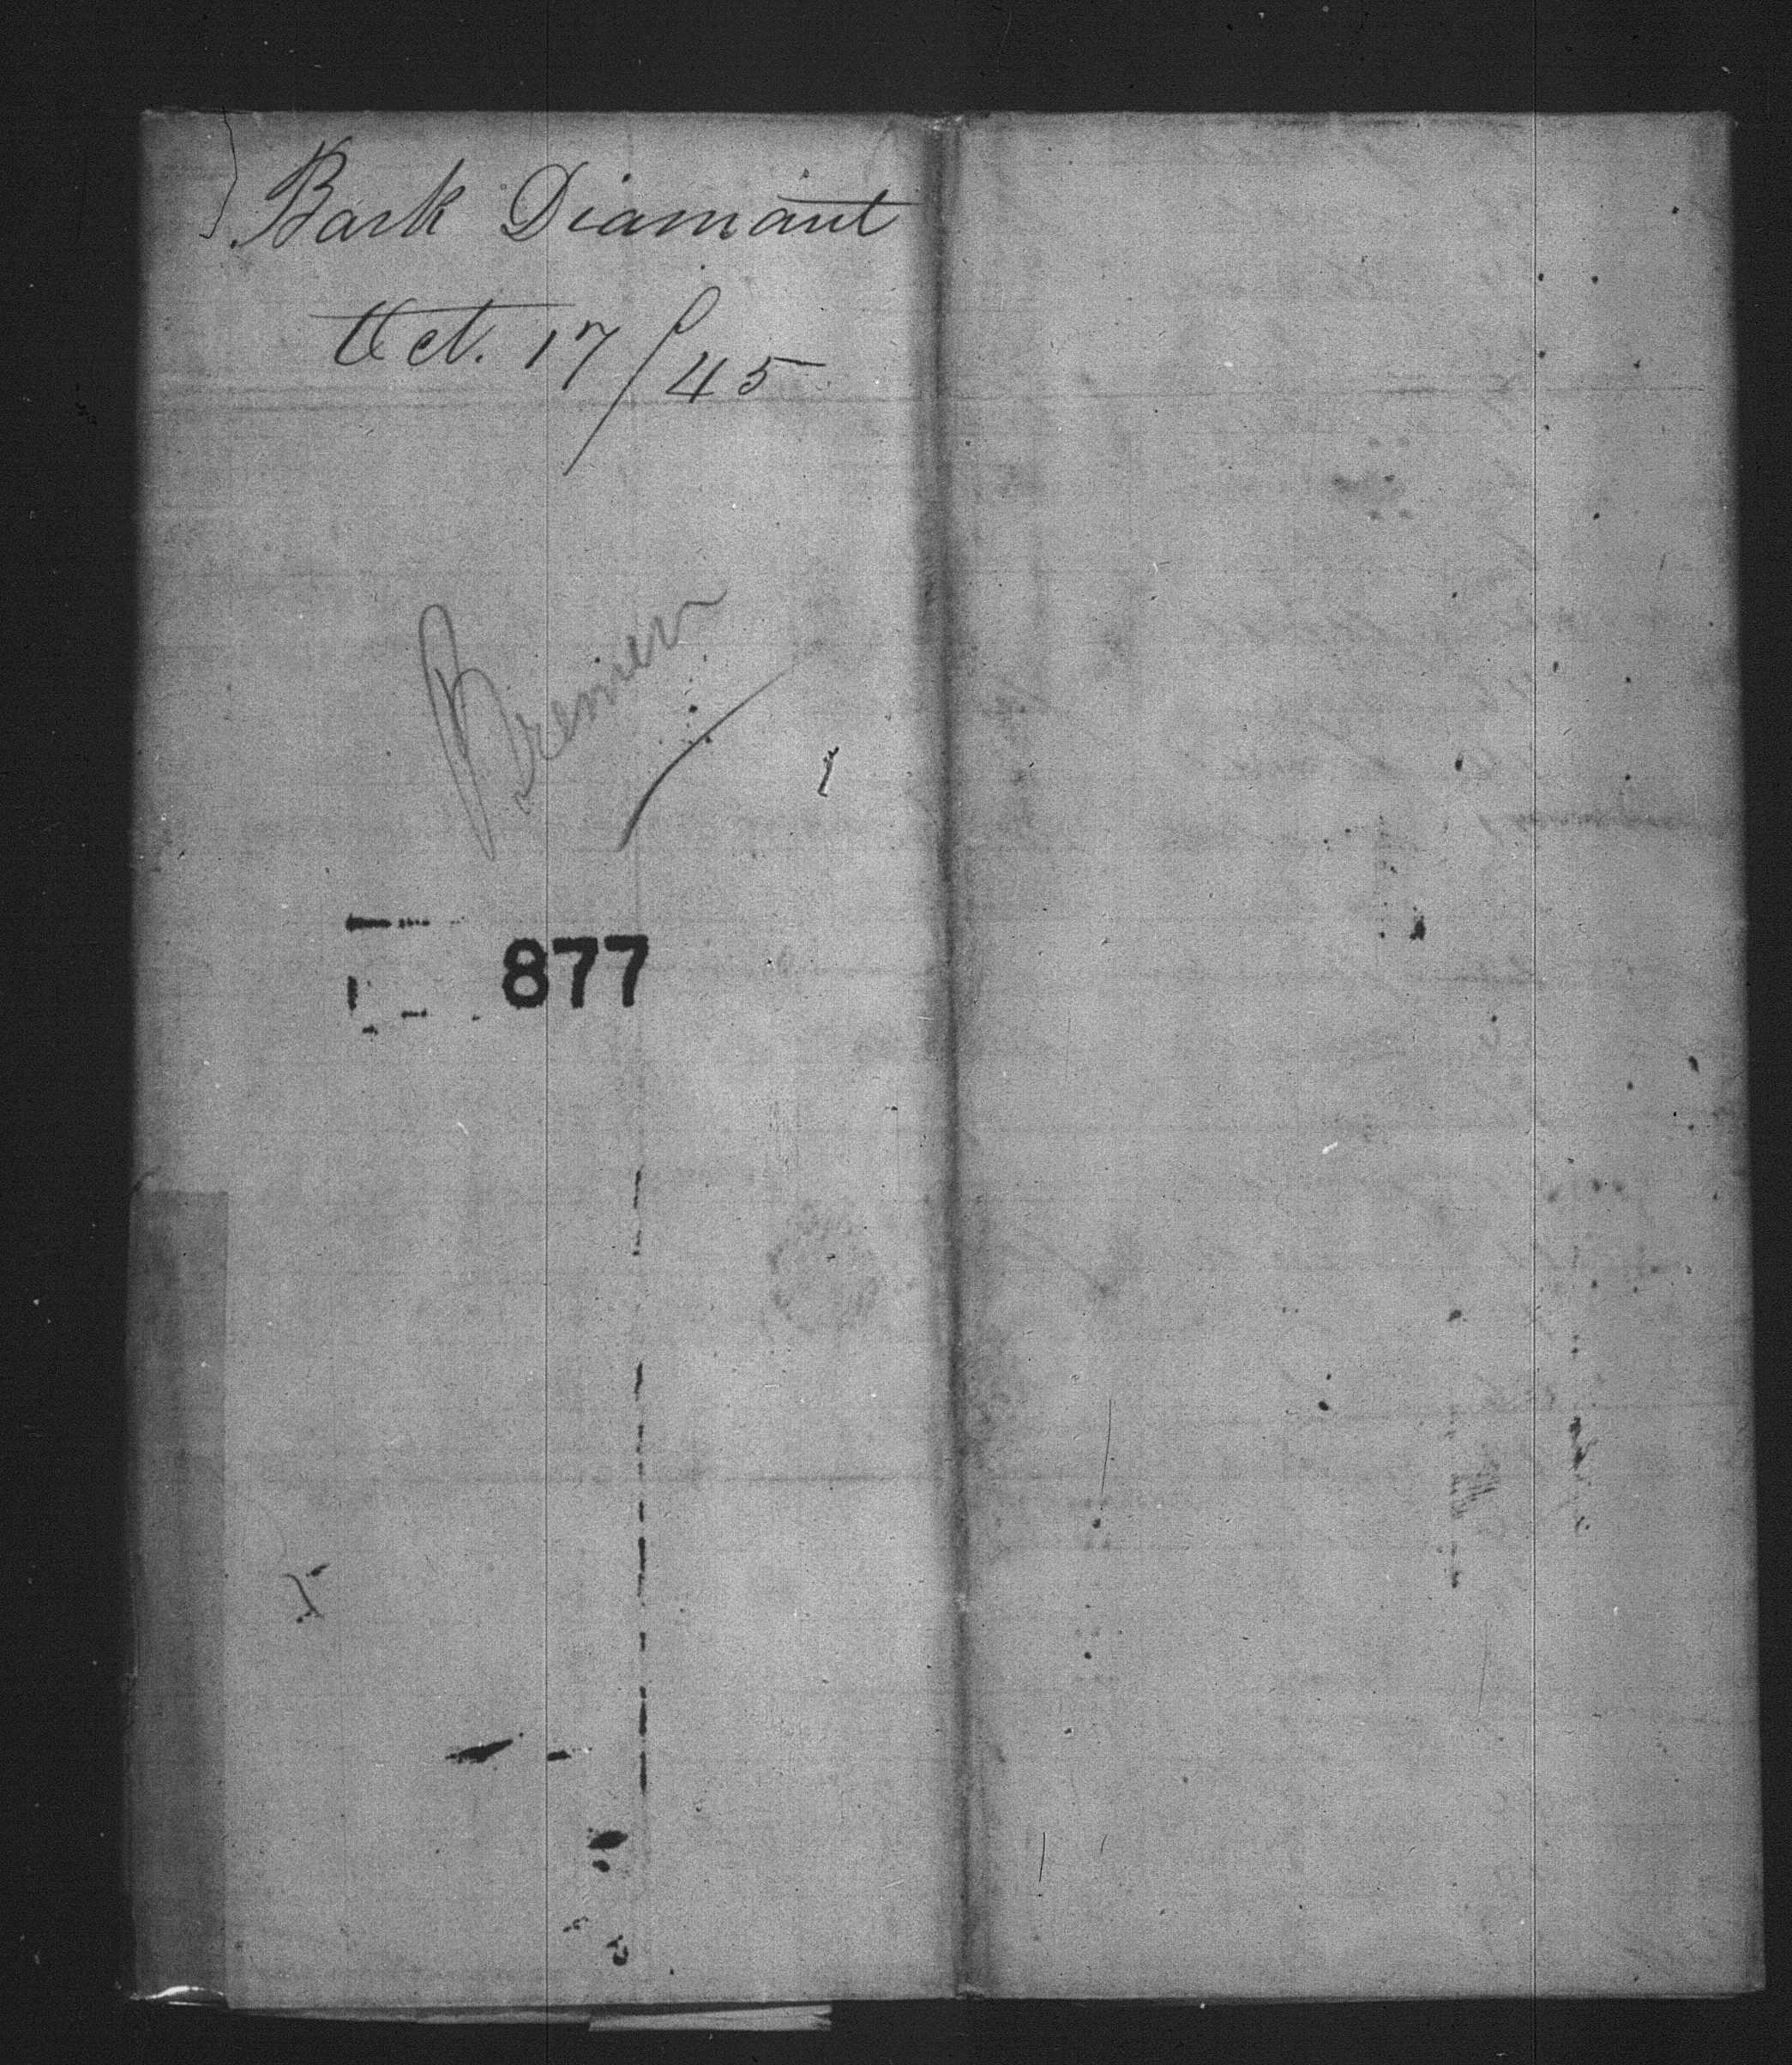 Bark Diamant
Oct. 17/45
Bremen
877